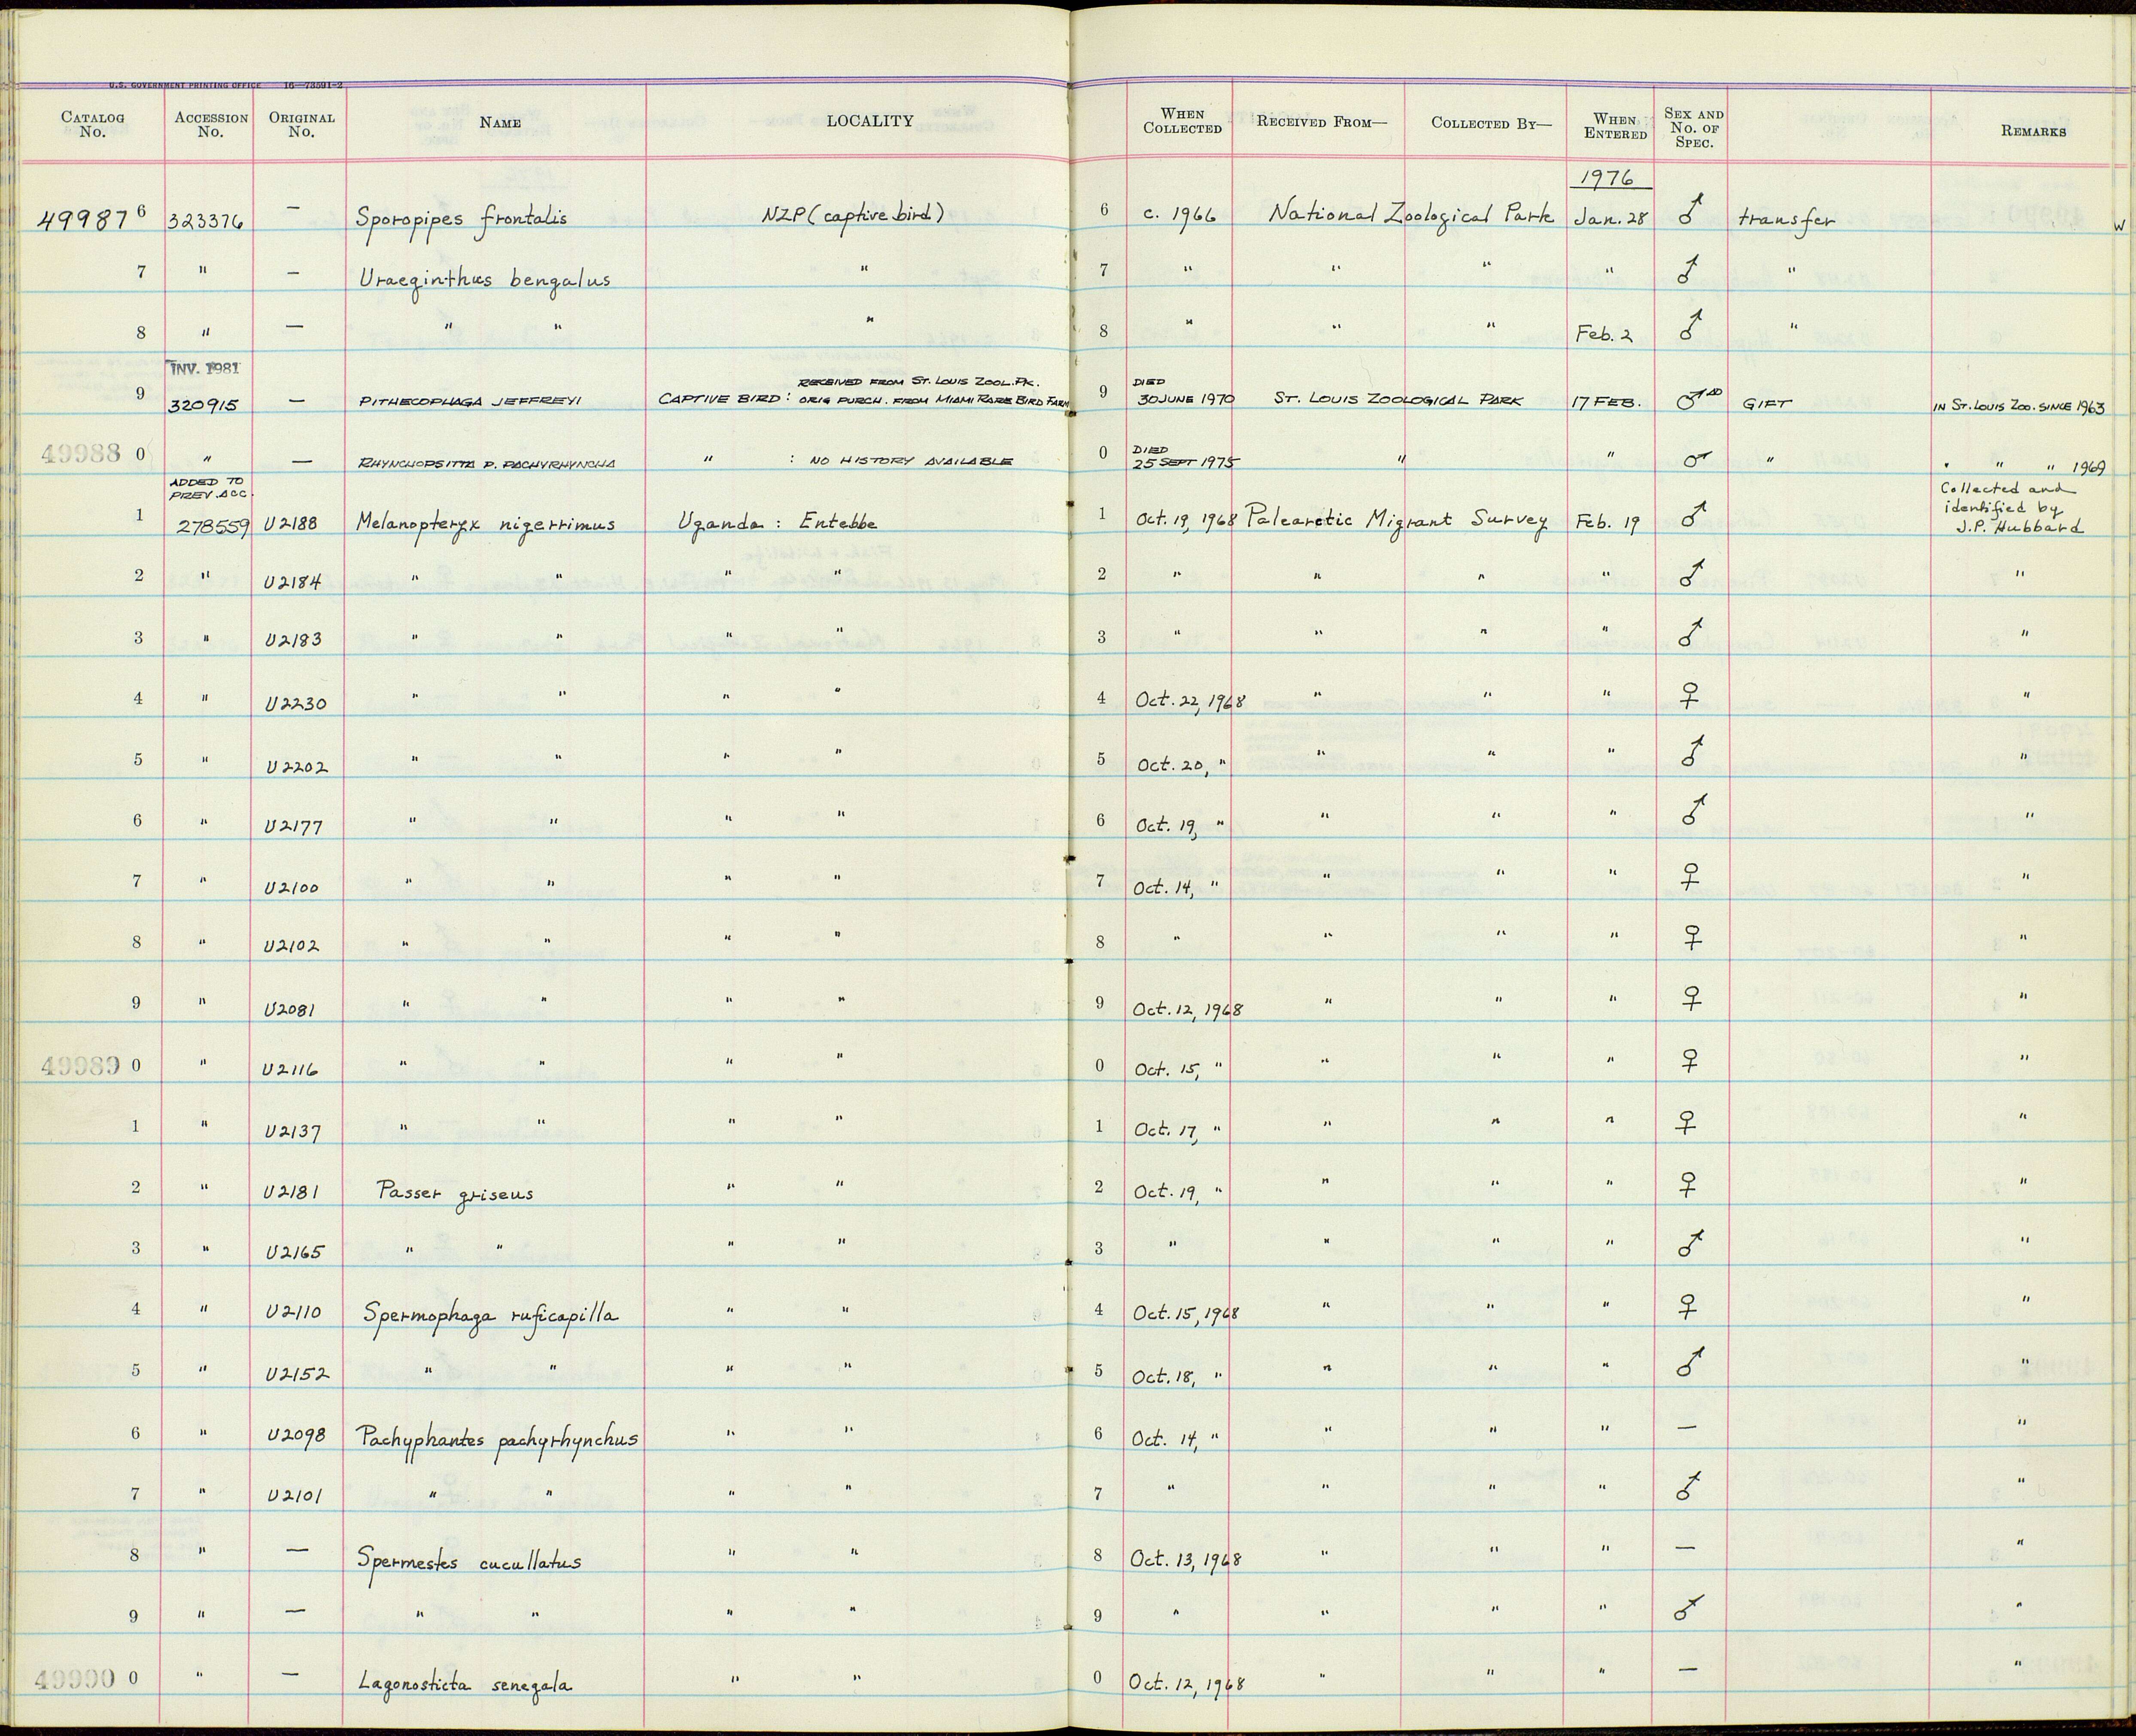 U.S. GOVERNMENT PRINTING OFFICE 16—73591-2
CATALOG No. ACCESSION No. ORIGINAL No. NAME LOCALITY WHEN COLLECTED RECEIVED FROM— COLLECTED BY— WHEN ENTERED SEX AND No. OF SPEC. REMARKS
1976
49987 6 323376 — Sporopipes frontalis NZP (captive bird) 6 c. 1966 National Zoological Park Jan. 28 ♂ transfer W
7 " — Uraeginthus bengalus " 7 " " " " ♂ "
8 " — " " " 8 " " " Feb. 2 ♂ "
INV. 1981 RECEIVED FROM ST. LOUIS ZOOL. PK. DIED
9 320915 — PITHECOPHAGA JEFFREYI CAPTIVE BIRD : ORIG PURCH. FROM MIAMI RARE BIRD FARM 9 30 JUNE 1970 ST. LOUIS ZOOLOGICAL PARK 17 FEB. ♂ AD GIFT IN ST. LOUIS ZOO. SINCE 1963
DIED
49988 0 " — RHYNCHOPSITTA P. PACHYRHYNCHA " : NO HISTORY AVAILABLE 0 25 SEPT 1975 " " ♂ " " " " 1969
ADDED TO PREV. ACC. Collected and identified by J.P. Hubbard
1 278559 U2188 Melanopteryx nigerrimus Uganda : Entebbe 1 Oct. 19, 1968 Palearctic Migrant Survey Feb. 19 ♂
2 " U2184 " " " " 2 " " " " ♂ "
3 " U2183 " " " " 3 " " " " ♂ "
4 " U2230 " " " " 4 Oct. 22, 1968 " " " ♀ "
5 " U2202 " " " " 5 Oct. 20, " " " " ♂ "
6 " U2177 " " " " 6 Oct. 19, " " " " ♂ "
7 " U2100 " " " " 7 Oct. 14, " " " " ♀ "
8 " U2102 " " " " 8 " " " " ♀ "
9 " U2081 " " " " 9 Oct. 12, 1968 " " " ♀ "
49989 0 " U2116 " " " " 0 Oct. 15, " " " " ♀ "
1 " U2137 " " " " 1 Oct. 17, " " " " ♀ "
2 " U2181 Passer griseus " " 2 Oct. 19, " " " " ♀ "
3 " U2165 " " " " 3 " " " " ♂ "
4 " U2110 Spermophaga ruficapilla " " 4 Oct. 15, 1968 " " " ♀ "
5 " U2152 " " " " 5 Oct. 18, " " " " ♂ "
6 " U2098 Pachyphantes pachyrhynchus " " 6 Oct. 14, " " " " — "
7 " U2101 " " " " 7 " " " " ♂ "
8 " — Spermestes cucullatus " " 8 Oct. 13, 1968 " " " — "
9 " — " " " " 9 " " " " ♂ "
49990 0 " — Lagonosticta senegala " " 0 Oct. 12, 1968 " " " — "